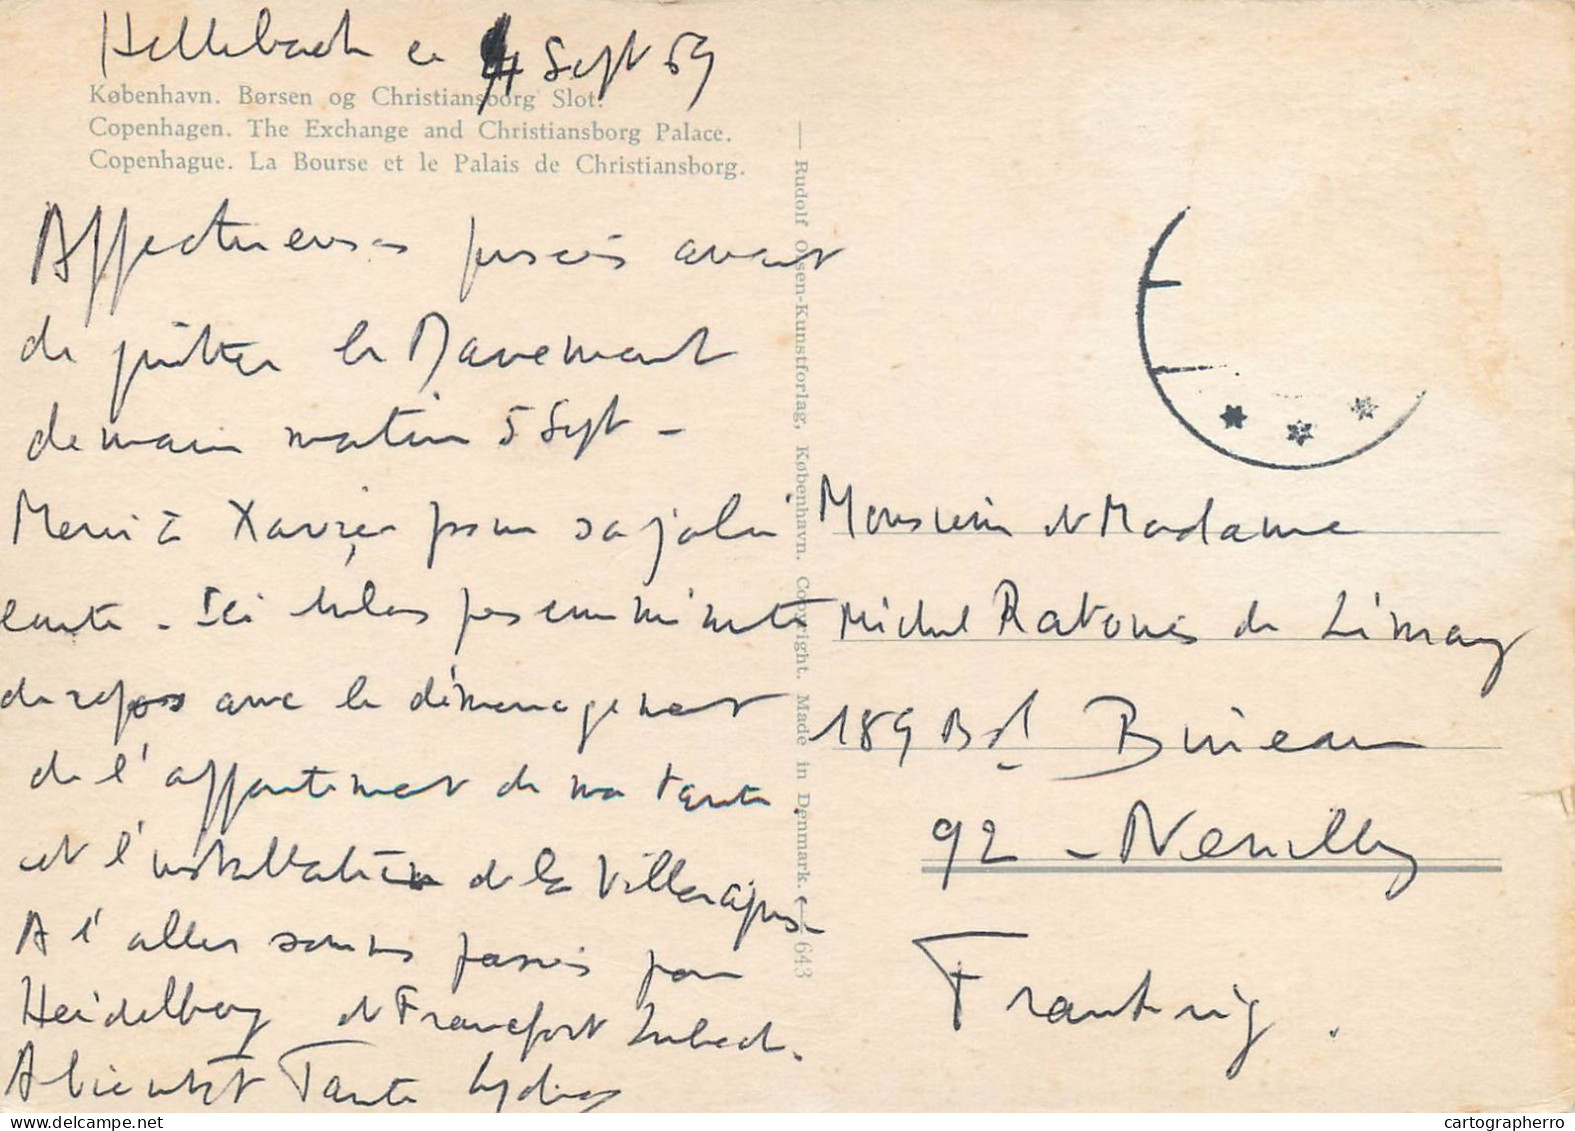 Hellebæk le 4 Sept 69
København. Børsen og Christiansborg Slot.
Copenhagen. The Exchange and Christiansborg Palace.
Copenhague. La Bourse et le Palais de Christiansborg.
Affectueuses pensées avant
de quitter le Danemark
demain matin 5 Sept -
Merci à Xavier pour sa jolie
carte - Ici hélas pas une minute
de repos avec le déménagement
de l'appartement de ma tante
et l'installation de la Villa
A l'aller sommes passés par
Heidelberg et Francfort Lubeck.
A bientôt Tante
— Rudolf Olsen-Kunstforlag, København. Copyright. Made in Denmark. — 643
Monsieur et Madame
Michel de Limay
189 Bd Bineau
92 - Neuilly
Frankrig.
cartographerro